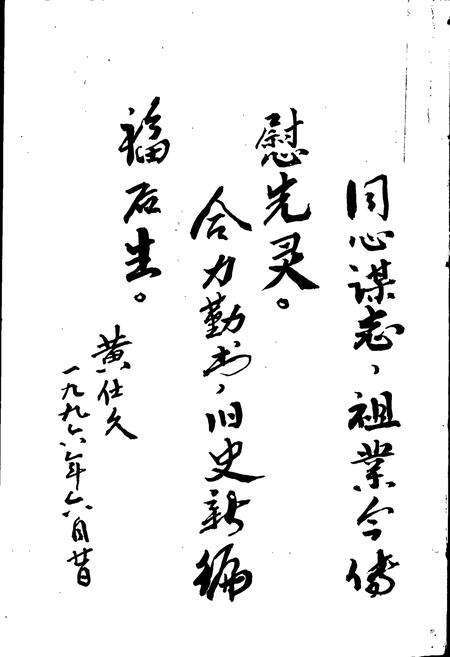 同心谋志，祖业今传
慰先灵。
合力勤书，旧史新编
福后生。
黄仕久
一九九六年六月廿日